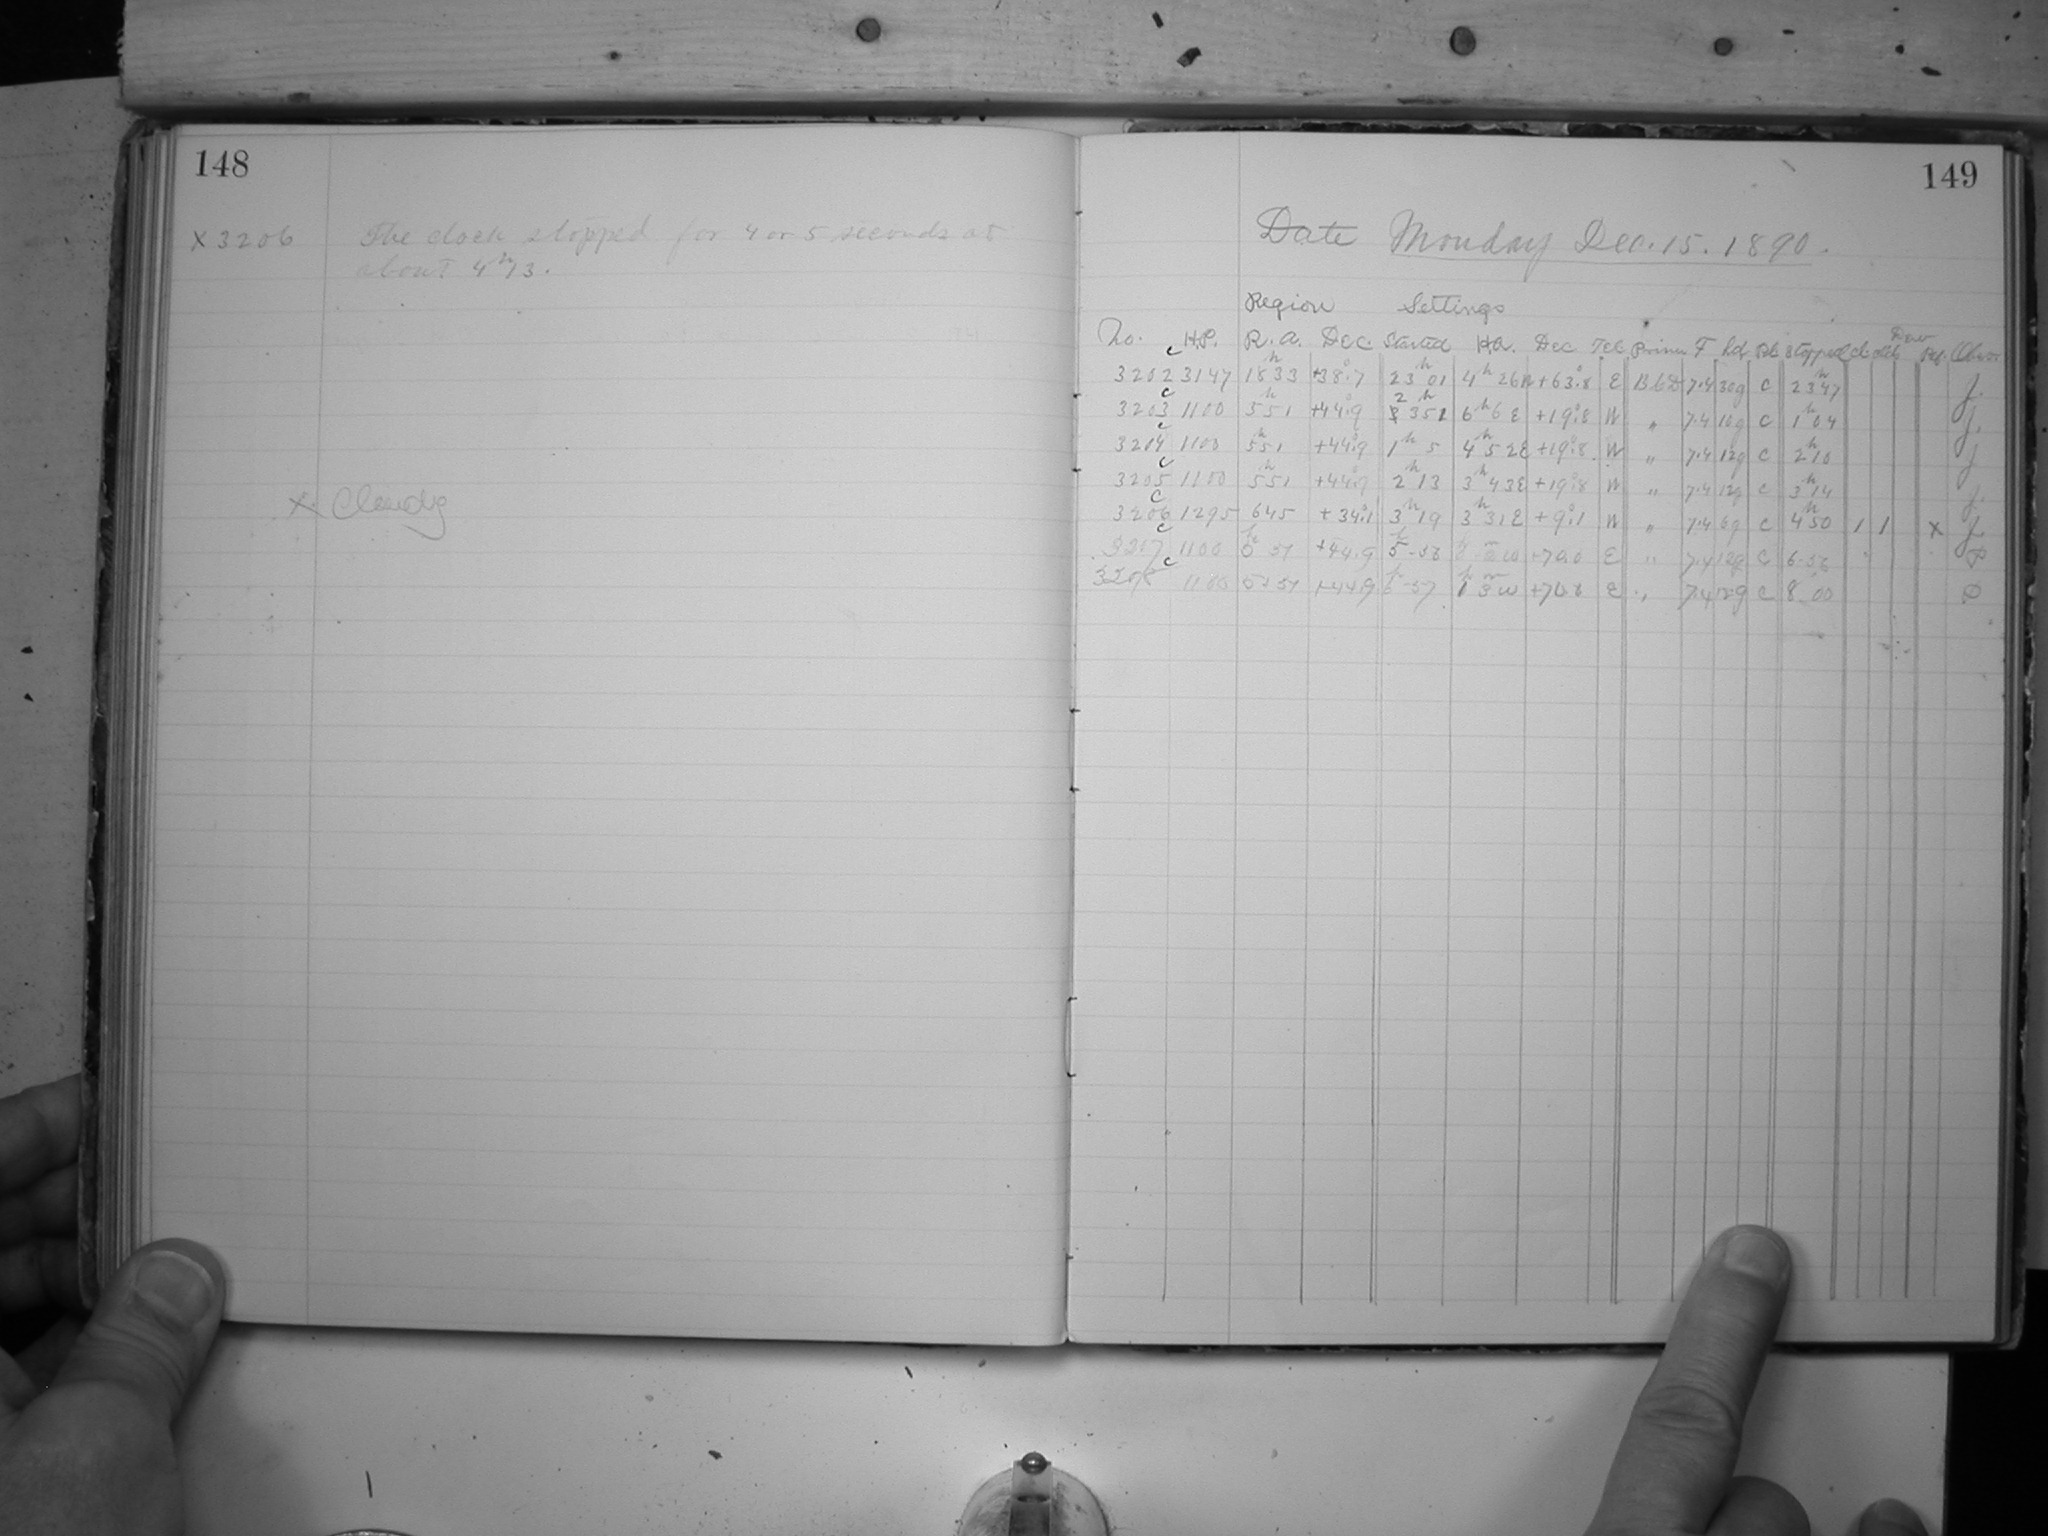 148
X 3206 The clock stopped for 4 or 5 seconds at
about 4h13.
X Cloudy
149
Date Monday Dec. 15. 1890.
Region Settings
No. H.P. R.A. Dec. Started H.A. Dec Tel Prism F Rd Pl Stopped cl
3202 c 3147 18h33 +38°.7 23h01 4h26W +63°.8 E B&D 7.4 30g C 23h47 J.
3203 c 1100 5h51 +44°.9 2351 6h6E +19°.8 W " 7.4 10g C 1h04 J.
3204 c 1100 5h51 +44°.9 1h5 4h52E +19°.8 W " 7.4 12g C 2h10 J
3205 c 1100 5h51 +44°.9 2h13 3h43E +19°.8 W " 7.4 12g C 3h14 J.
3206 c 1295 645 +34°.1 3h19 3h31E +9°.1 W " 7.4 6g C 4h50 1 1 X J.
3207 c 1100 5h51 +44.9 5-56 E " 7.4 12g C 6-56
3208 c 1100 5h51 +44.9 6-57 1h3mW +70.8 E " 7.4 12g C 8 00